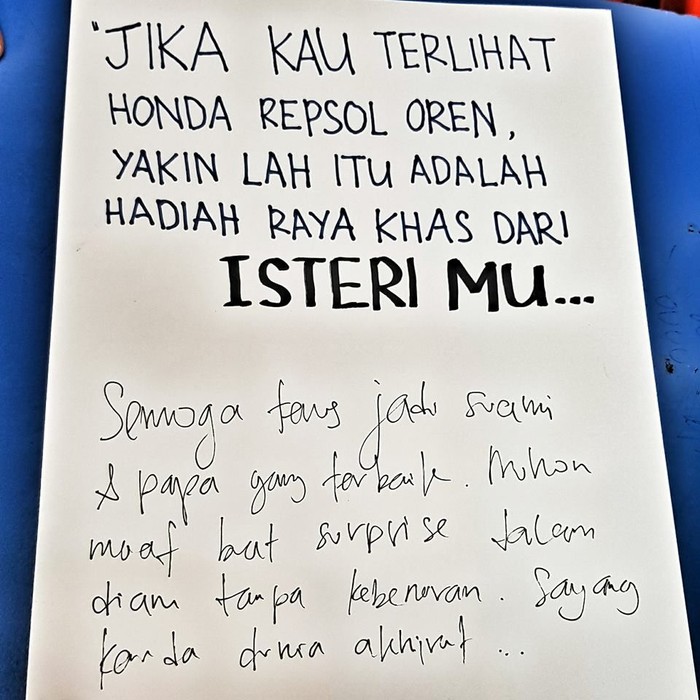 'JIKA KAU TERLIHAT
HONDA REPSOL OREN,
YAKIN LAH ITU ADALAH
HADIAH RAYA KHAS DARI
ISTERI MU...
Semoga terus jadi suami
& papa yang terbaik. Mohon
maaf buat surprise dalam
diam tanpa kebenaran. Sayang
kanda dunia akhirat ...